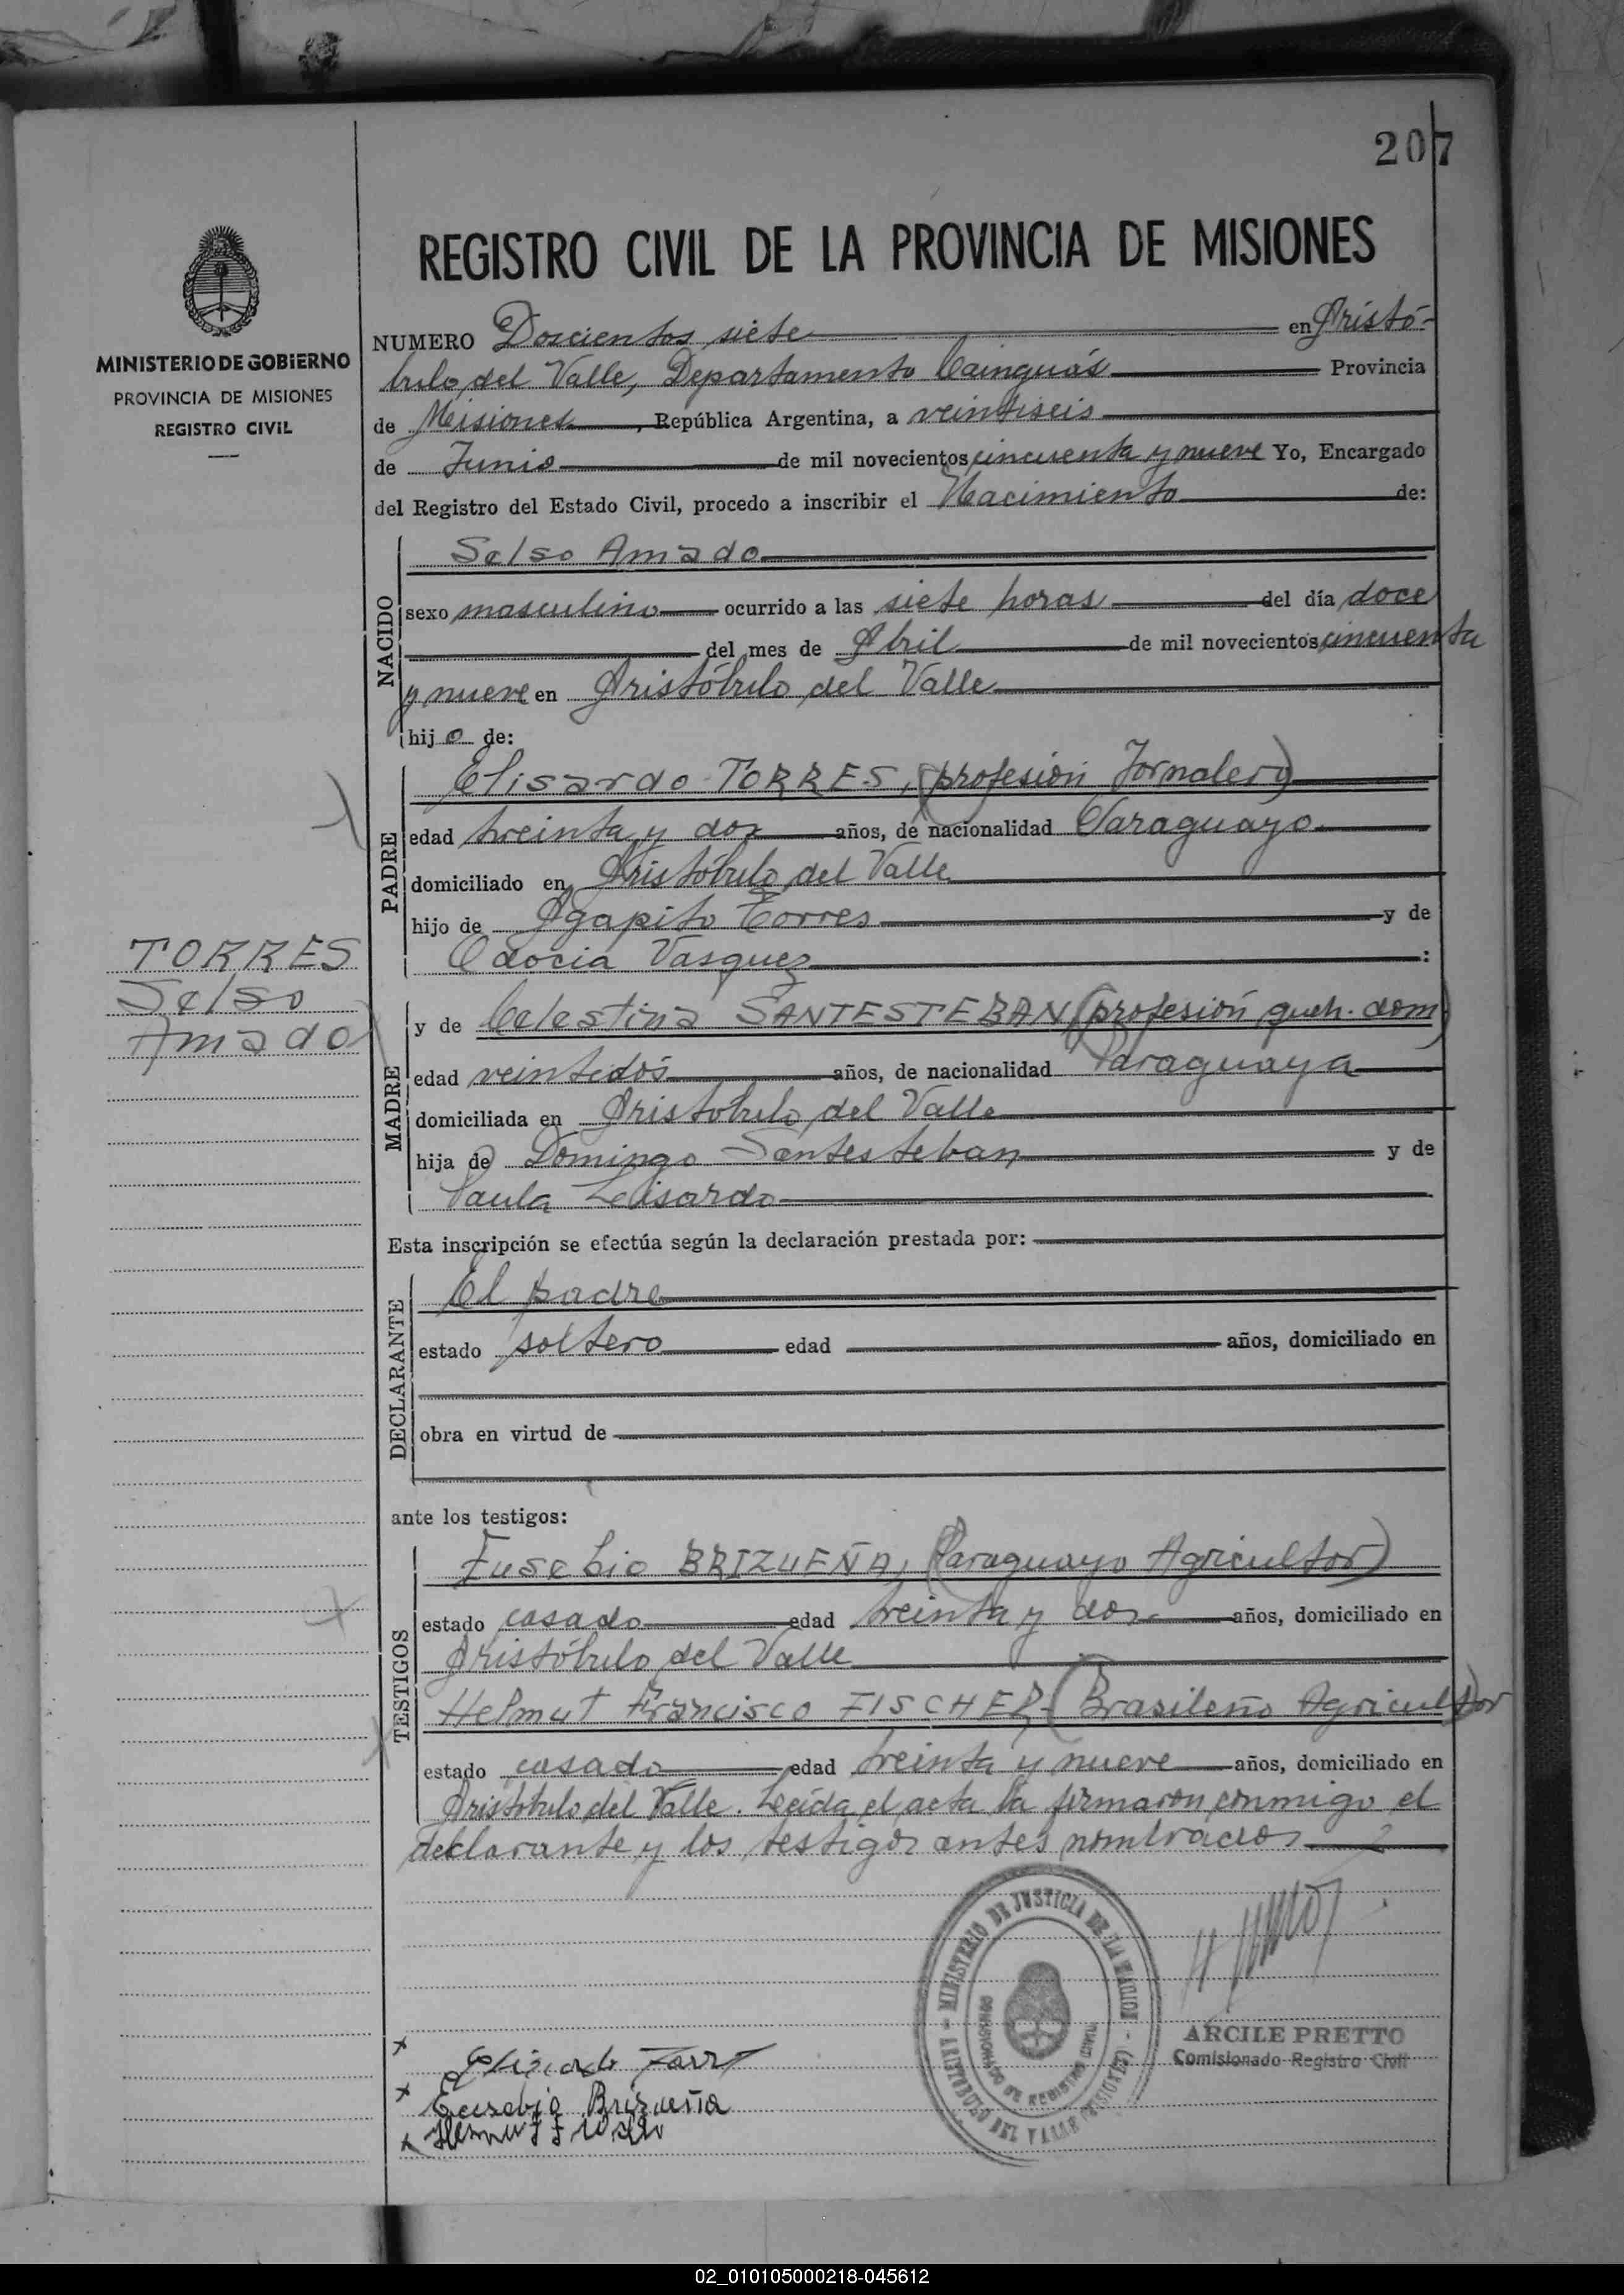 207
REGISTRO CIVIL DE LA PROVINCIA DE MISIONES
MINISTERIO DE GOBIERNO
PROVINCIA DE MISIONES
REGISTRO CIVIL
NUMERO Doscientos siete en Aristó-
bulo del Valle, Departamento Cainguás Provincia
de Misiones, República Argentina, a veintiseis
de Junio de mil novecientos cincuenta y nueve Yo, Encargado
del Registro del Estado Civil, procedo a inscribir el Nacimiento de:
NACIDO
Selso Amado
sexo masculino ocurrido a las siete horas del día doce
del mes de Abril de mil novecientos cincuenta
y nueve en Aristóbulo del Valle
hijo de:
PADRE
Elisardo TORRES, (profesión Jornalero)
edad treinta y dos años, de nacionalidad Paraguayo
domiciliado en Aristóbulo del Valle
hijo de Agapito Torres y de
Odocia Vasquez :
TORRES
Selso
Amado
MADRE
y de Celestina SANTESTEBAN (profesión queh. dom)
edad veintidós años, de nacionalidad Paraguaya
domiciliada en Aristobulo del Valle
hija de Domingo Santesteban y de
Paula Lisardo
Esta inscripción se efectúa según la declaración prestada por:
DECLARANTE
El padre
estado soltero edad años, domiciliado en
obra en virtud de
ante los testigos:
TESTIGOS
Eusebio BRIZUEÑA, (Paraguayo Agricultor)
estado casado edad treinta y dos años, domiciliado en
Aristóbulo del Valle
Helmut Francisco FISCHER (Brasileño Agricultor
estado casado edad treinta y nueve años, domiciliado en
Aristobulo del Valle. Leída el acta la firmaron conmigo el
declarante y los testigos antes nombrados
MINISTERIO DE JUSTICIA DE LA NACION
COMISIONADO DE REGISTRO CIVIL
ARISTOBULO DEL VALLE (MISIONES)
ARCILE PRETTO
Comisionado Registro Civil
x
x Eusebio Brizueña
x
02_010105000218-045612